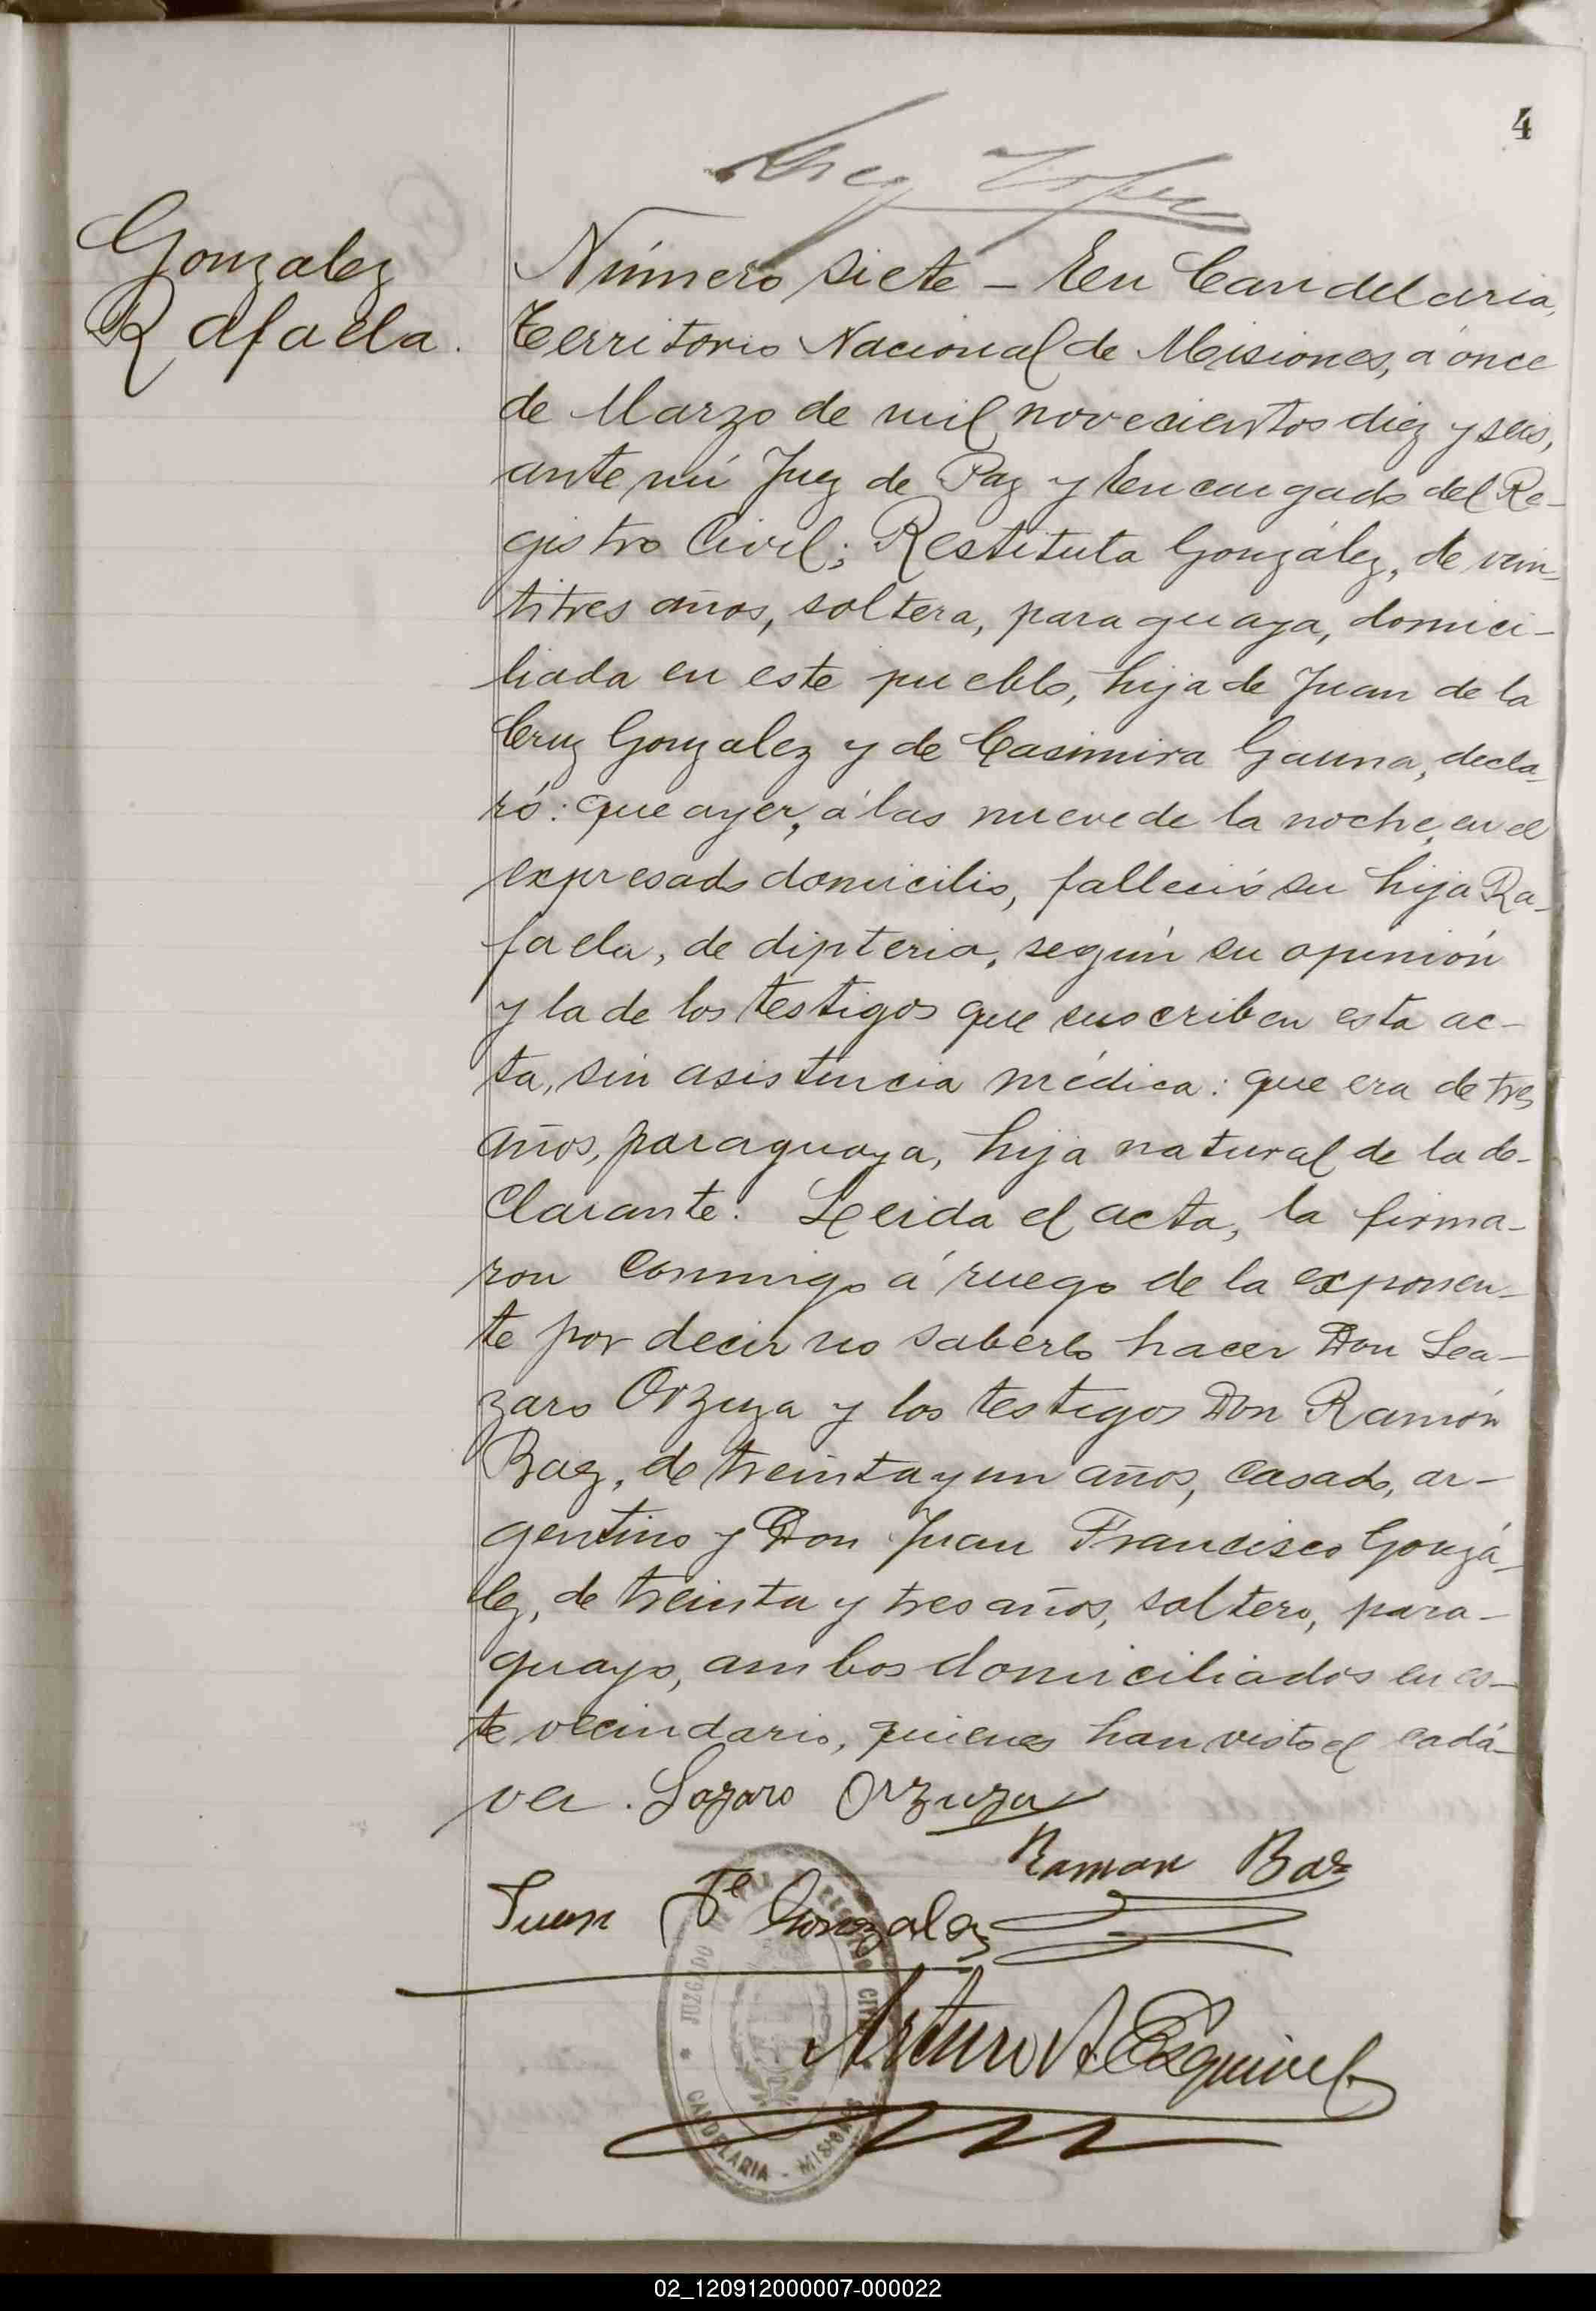 4
Gonzalez
Rafaela.
Número siete – En Candelaria,
Territorio Nacional de Misiones, á once
de Marzo de mil novecientos diez y seis,
ante mí Juez de Paz y Encargado del Re-
gistro Civil; Restituta González, de vein-
titres años, soltera, paraguaya, domici-
liada en este pueblo, hija de Juan de la
Cruz Gonzalez y de Casimira Gauna, decla-
ró: que ayer, á las nueve de la noche, en el
expresado domicilio, falleció su hija Ra-
faela, de dipteria, según su opinión
y la de los testigos que suscriben esta ac-
ta, sin asistencia médica: que era de tres
años, paraguaya, hija natural de la de-
clarante. Leida el acta, la firma-
ron conmigo á ruego de la exponen-
te por decir no saberlo hacer Don Lea-
zaro Orzuza y los testigos Don Ramón
Baz, de treinta y un años, casado, ar-
gentino y Don Juan Francisco Gonzá-
lez, de treinta y tres años, soltero, para-
guayo, ambos domiciliados en es-
te vecindario, quienes han visto el cadá-
ver. Lazaro Orzuza
Ramon Baz
Juan Fe Gonzalez
Arturo A Esquivel
JUZGADO DE PAZ Y REGISTRO CIVIL
* CANDELARIA - MISIONES
02_120912000007-000022